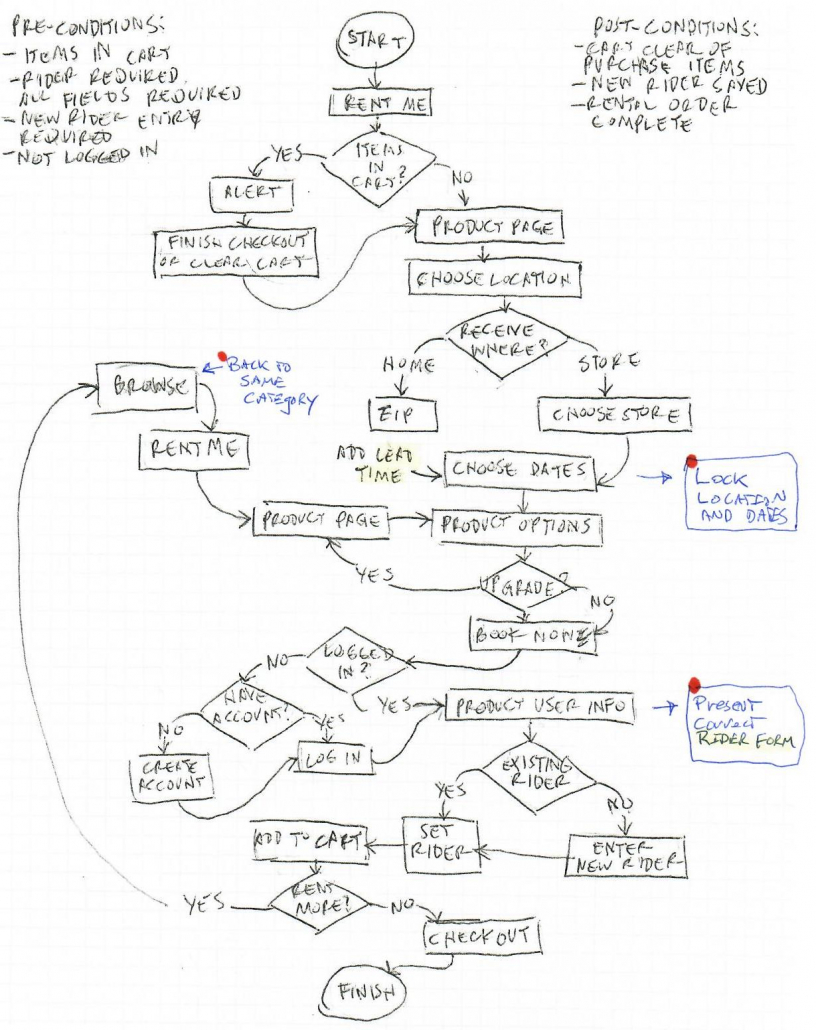 PRE-CONDITIONS:
- ITEMS IN CART
- RIDER REQUIRED.
ALL FIELDS REQUIRED
- NEW RIDER ENTRY
REQUIRED
- NOT LOGGED IN
POST-CONDITIONS:
- CART CLEAR OF
PURCHASE ITEMS
- NEW RIDER SAVED
- RENTAL ORDER
COMPLETE
START
RENT ME
ITEMS
IN
CART?
YES
NO
ALERT
FINISH CHECKOUT
OR CLEAR CART
PRODUCT PAGE
CHOOSE LOCATION
RECEIVE
WHERE?
HOME
STORE
BROWSE
BACK TO
SAME
CATEGORY
ZIP
CHOOSE STORE
RENT ME
ADD LEAD
TIME
CHOOSE DATES
LOCK
LOCATION
AND DATES
PRODUCT PAGE
PRODUCT OPTIONS
YES
UPGRADE?
NO
BOOK NOW
LOGGED
IN?
NO
YES
HAVE
ACCOUNT?
NO
YES
PRODUCT USER INFO
Present
Correct
RIDER FORM
CREATE
ACCOUNT
LOG IN
EXISTING
RIDER
YES
NO
ADD TO CART
SET
RIDER
ENTER
NEW RIDER
RENT
MORE?
YES
NO
CHECKOUT
FINISH